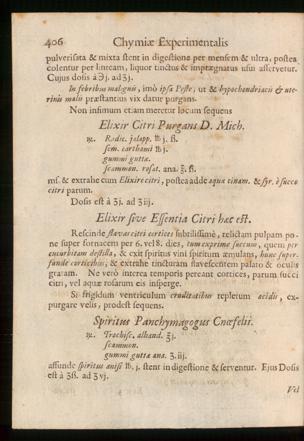 406 Chymiæ Experimentalis
pulverisata & mixta stent in digestione per mensem & ultra, postea
colentur per linteam, liquor tinctus & imprægnatus usui asservetur.
Cujus dosis à ℈j. ad ʒj.
In febribus malignis, imò ipsa Peste; ut & hypochondriacis & ute-
rinis malis præstantius vix datur purgans.
Non infimum etiam meretur locum sequens
Elixir Citri Purgans D. Mich.
℞. Radic. jalapp. ℔ j. ß.
sem. carthami ℔ j.
gummi guttæ.
scammon. rosat. ana. ℥. ß.
ms. & extrahe cum Elixire citri, postea adde aquæ cinam. & syr. è succo
citri parum.
Dosis est à ʒj. ad ʒiij.
Elixir sive Essentia Citri hæc est.
Rescinde flavas citri cortices subtilissimè, relictam pulpam po-
ne super fornacem per 6. vel 8. dies, tum exprime succum, quem per
cucurbitam destilla, & exit spiritus vini æmulans, hunc super-
funde corticibus, & extrahe tincturam flavescentem palato & oculis
gratam. Ne verò interea temporis pereant cortices, parum succi
citri, vel aquæ rosarum eis insperge.
Si frigidum ventriculum cruditatibus repletum acidis, ex-
purgare velis, prodest sequens.
Spiritus Panchymagogus Cnœfelii.
℞. Trochisc. alhand. ℥j.
scammon.
gummi guttæ ana ʒ.iij.
affunde spiritus anisi ℔. j. stent in digestione & serventur. Ejus Dosis
est à ʒß. ad ʒvj.
Vel